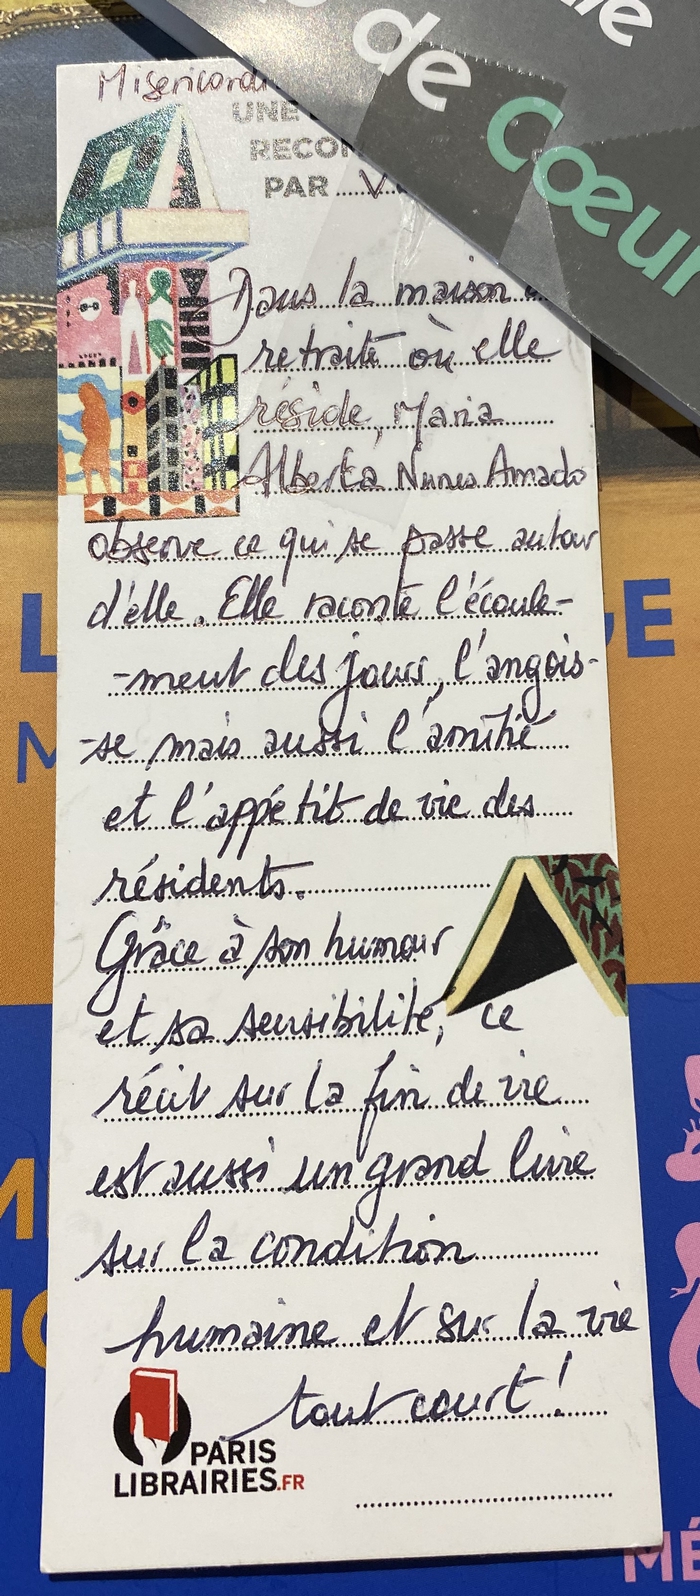 de
Cœur
Misericordi
UNE
RECOM
PAR
Dans la maison
retraite où elle
réside, Maria
Alberta Nunes Amado
observe ce qui se passe autour
d'elle. Elle raconte l'écoule-
-ment des jours, l'angois-
-se mais aussi l'amitié
et l'appétit de vie des
résidents.
Grâce à son humour
et sa sensibilité, ce
récit sur la fin de vie
est aussi un grand livre
sur la condition
humaine et sur la vie
tout court !
PARIS
LIBRAIRIES.FR